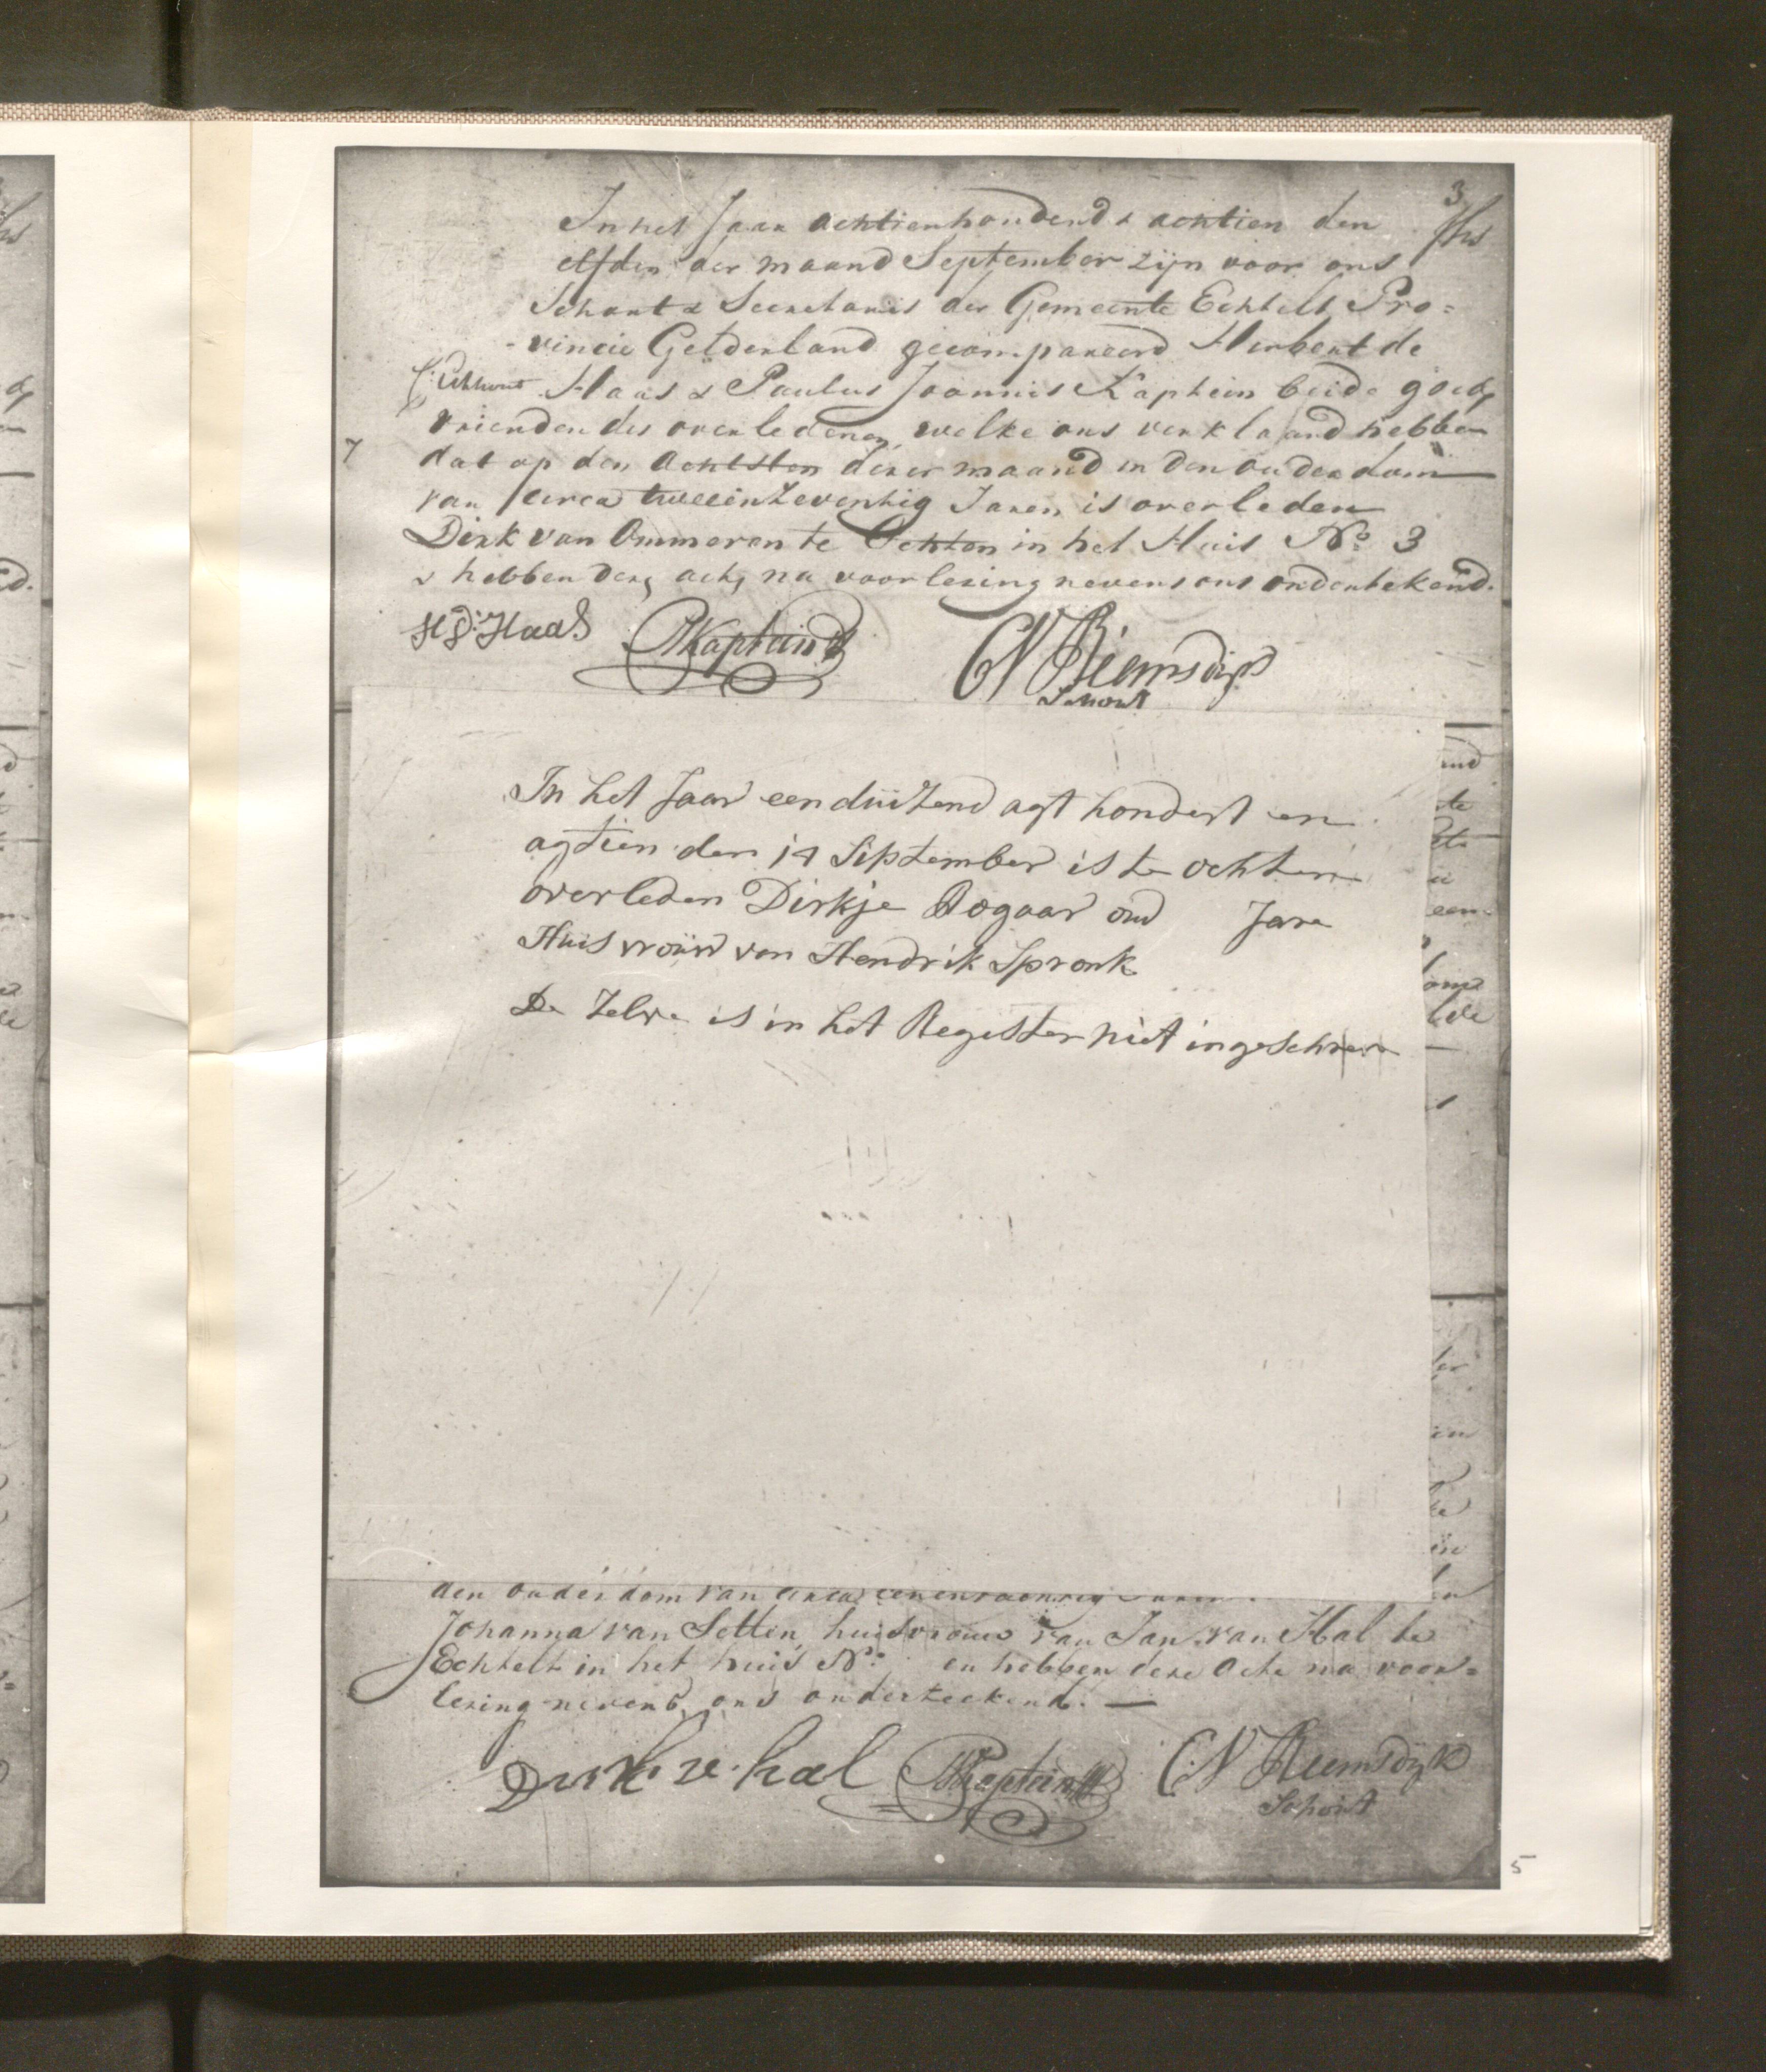 3
In het Jaar achtienhonderd & achtien den
elfden der maand September zijn voor ons
Schout & Secretaris der Gemeente Echtelt Pro=
-vincie Gelderland gecompareerd Herbert de
Haas & Paulus Joannis Kaptein beide goede
vrienden des overledenen, welke ons verklaard hebben
7
dat op den Achtsten dezer maand in den ouderdom
van circa tweeintzeventig Jaren is overleden
Dirk van Ommeren te Ochten in het Huis No. 3
& hebben deze acte na voorlezing nevens ons ondertekend.
H D: Haas PJKaptein CV Riemsdijk
Schout
In het Jaar een duizend agt hondert en
agtien den 14 September is te ochten
overleden Dirkje Bogaar oud Jare
Huisvrouw van Hendrik Spronk
De Zelve is in het Register niet ingeschreve
den ouderdom van circa
Johanna van Setten, huisvrouw van Jan van Hal te
Echtelt in het huis No: en hebben deze Acte na voor=
lezing nevens ons onderteekend. —
Dirk v. hal PJKaptein CV Riemsdijk
Schout
5